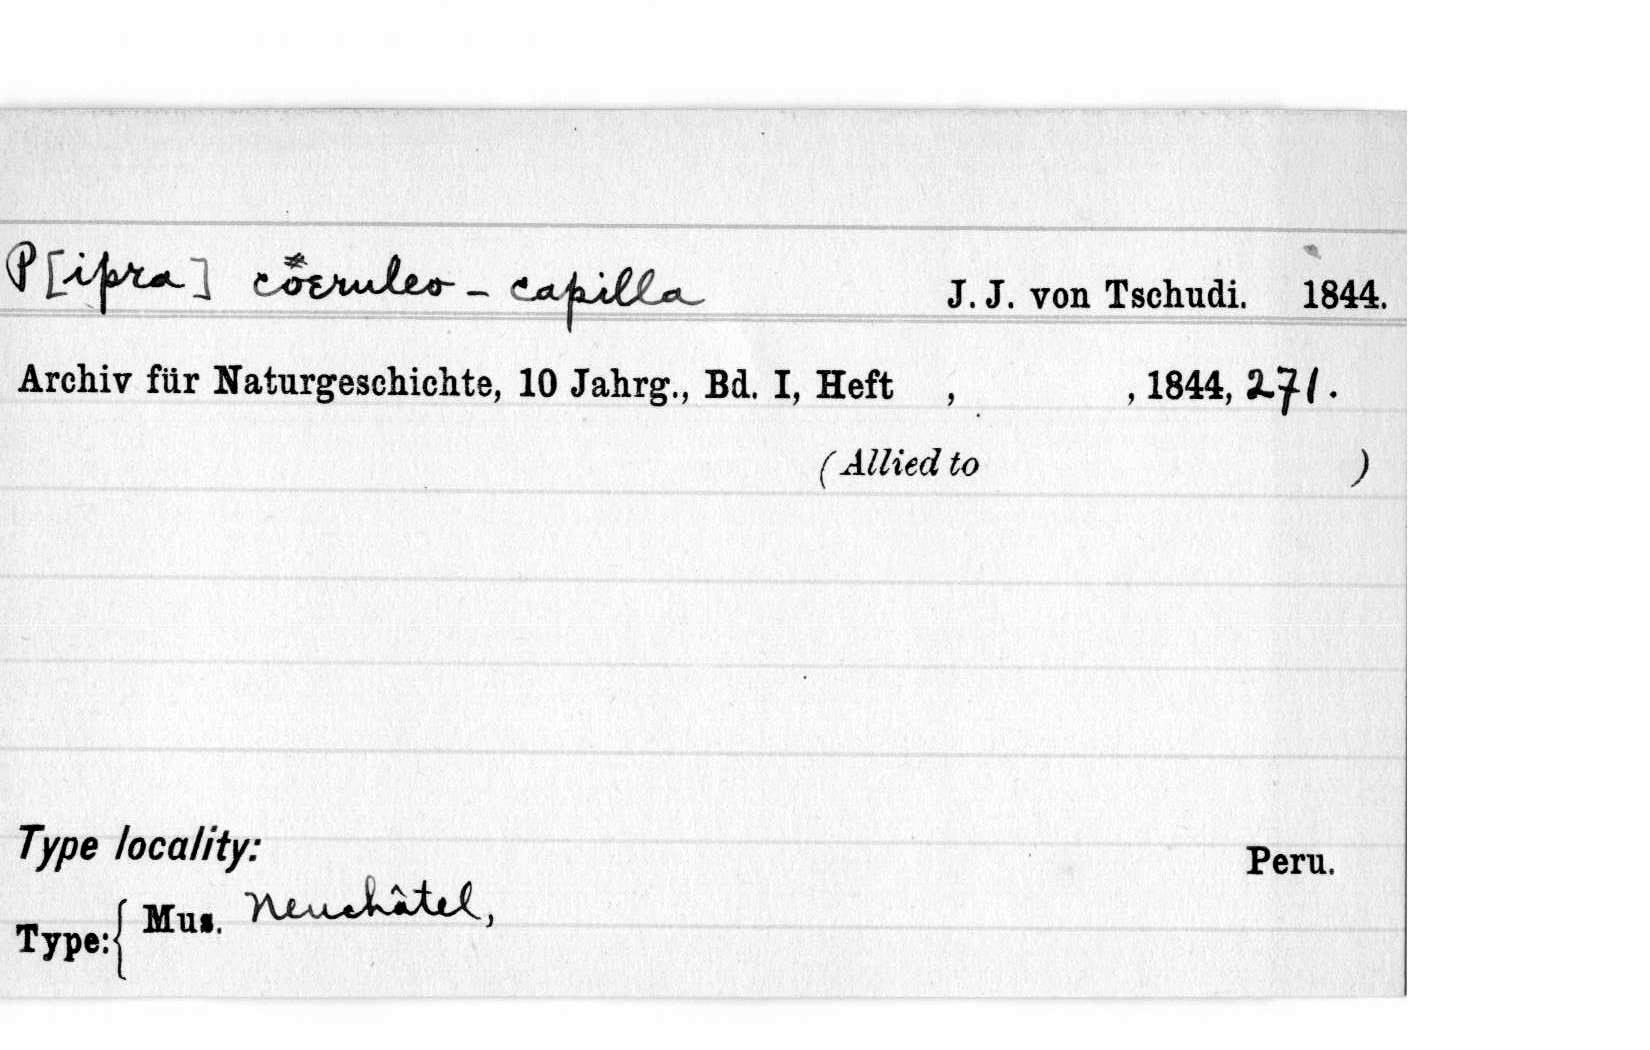 P[ipra] cöeruleo-capilla J. J. von Tschudi. 1844.
Archiv für Naturgeschichte, 10 Jahrg., Bd. I, Heft , , 1844, 271.
(Allied to )
Type locality: Peru.
Type: { Mus. Neuchâtel,